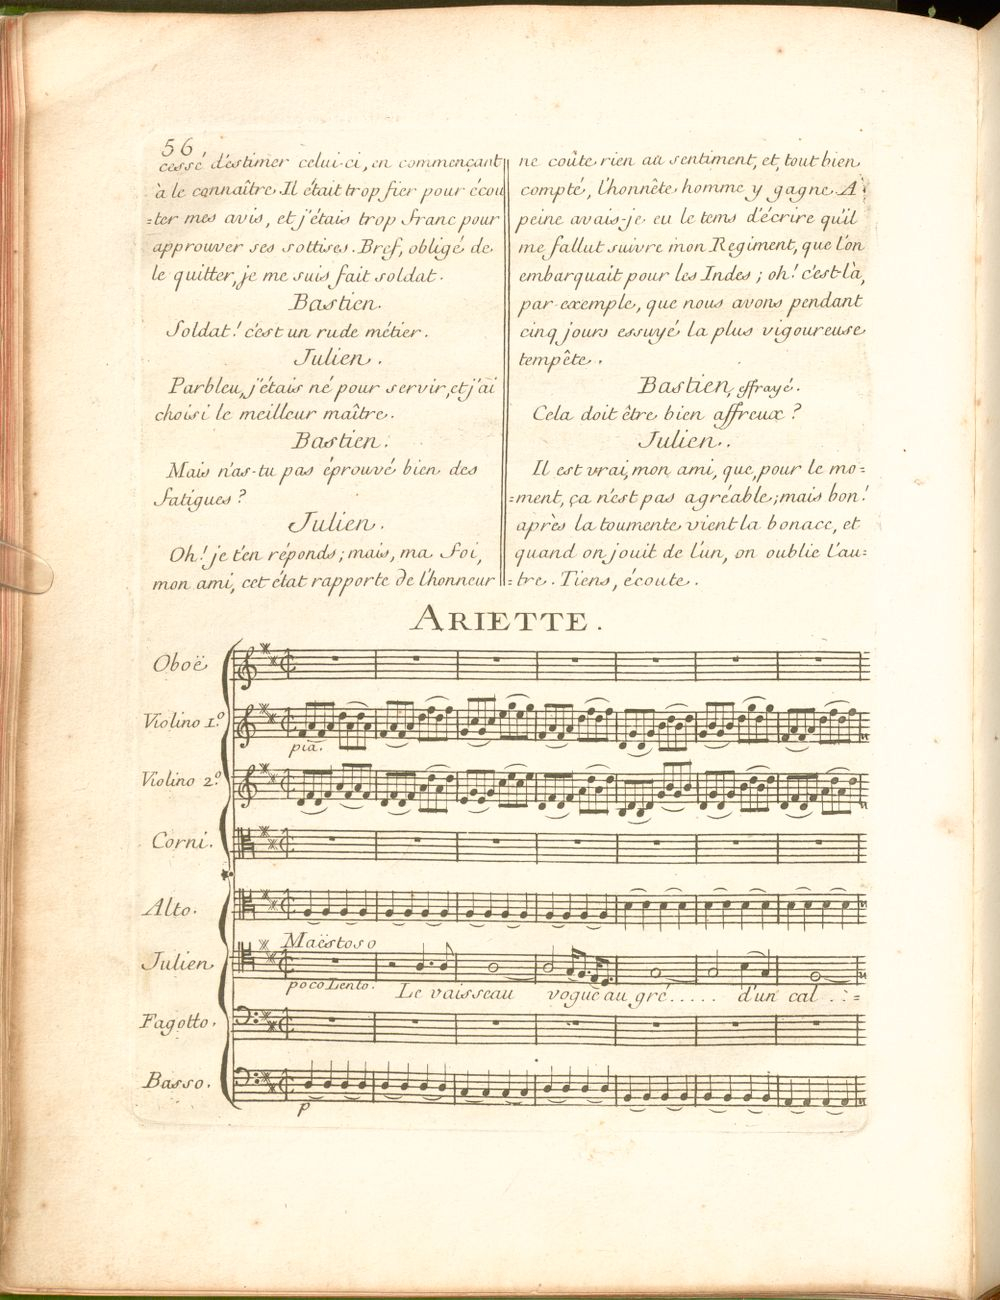 56
cessé d'estimer celui-ci, en commençant
à le connaître. Il était trop fier pour écou
=ter mes avis, et j'étais trop franc pour
approuver ses sottises. Bref, obligé de
le quitter, je me suis fait soldat.
Bastien.
Soldat! c'est un rude métier.
Julien.
Parbleu, j'étais né pour servir, et j'ai
choisi le meilleur maître.
Bastien.
Mais n'as-tu pas éprouvé bien des
fatigues?
Julien.
Oh! je t'en réponds; mais, ma foi,
mon ami, cet état rapporte de l'honneur
ne coûte rien au sentiment, et, tout bien
compté, l'honnête homme y gagne. A
peine avais-je eu le tems d'écrire qu'il
me fallut suivre mon Regiment, que l'on
embarquait pour les Indes; oh! c'est-là,
par exemple, que nous avons pendant
cinq jours essuyé la plus vigoureuse
tempête.
Bastien, effrayé.
Cela doit être bien affreux?
Julien..
Il est vrai, mon ami, que, pour le mo=
=ment, ça n'est pas agréable; mais bon!
après la toumente vient la bonace, et
quand on jouit de l'un, on oublie l'au=
=tre. Tiens, écoute.
ARIETTE.
Oboë
Violino 1.º
pia.
Violino 2.º
Corni.
Alto.
Maëstoso
Julien
poco Lento.
Le vaisseau vogue au gré..... d'un cal..:=
Fagotto.
Basso.
p